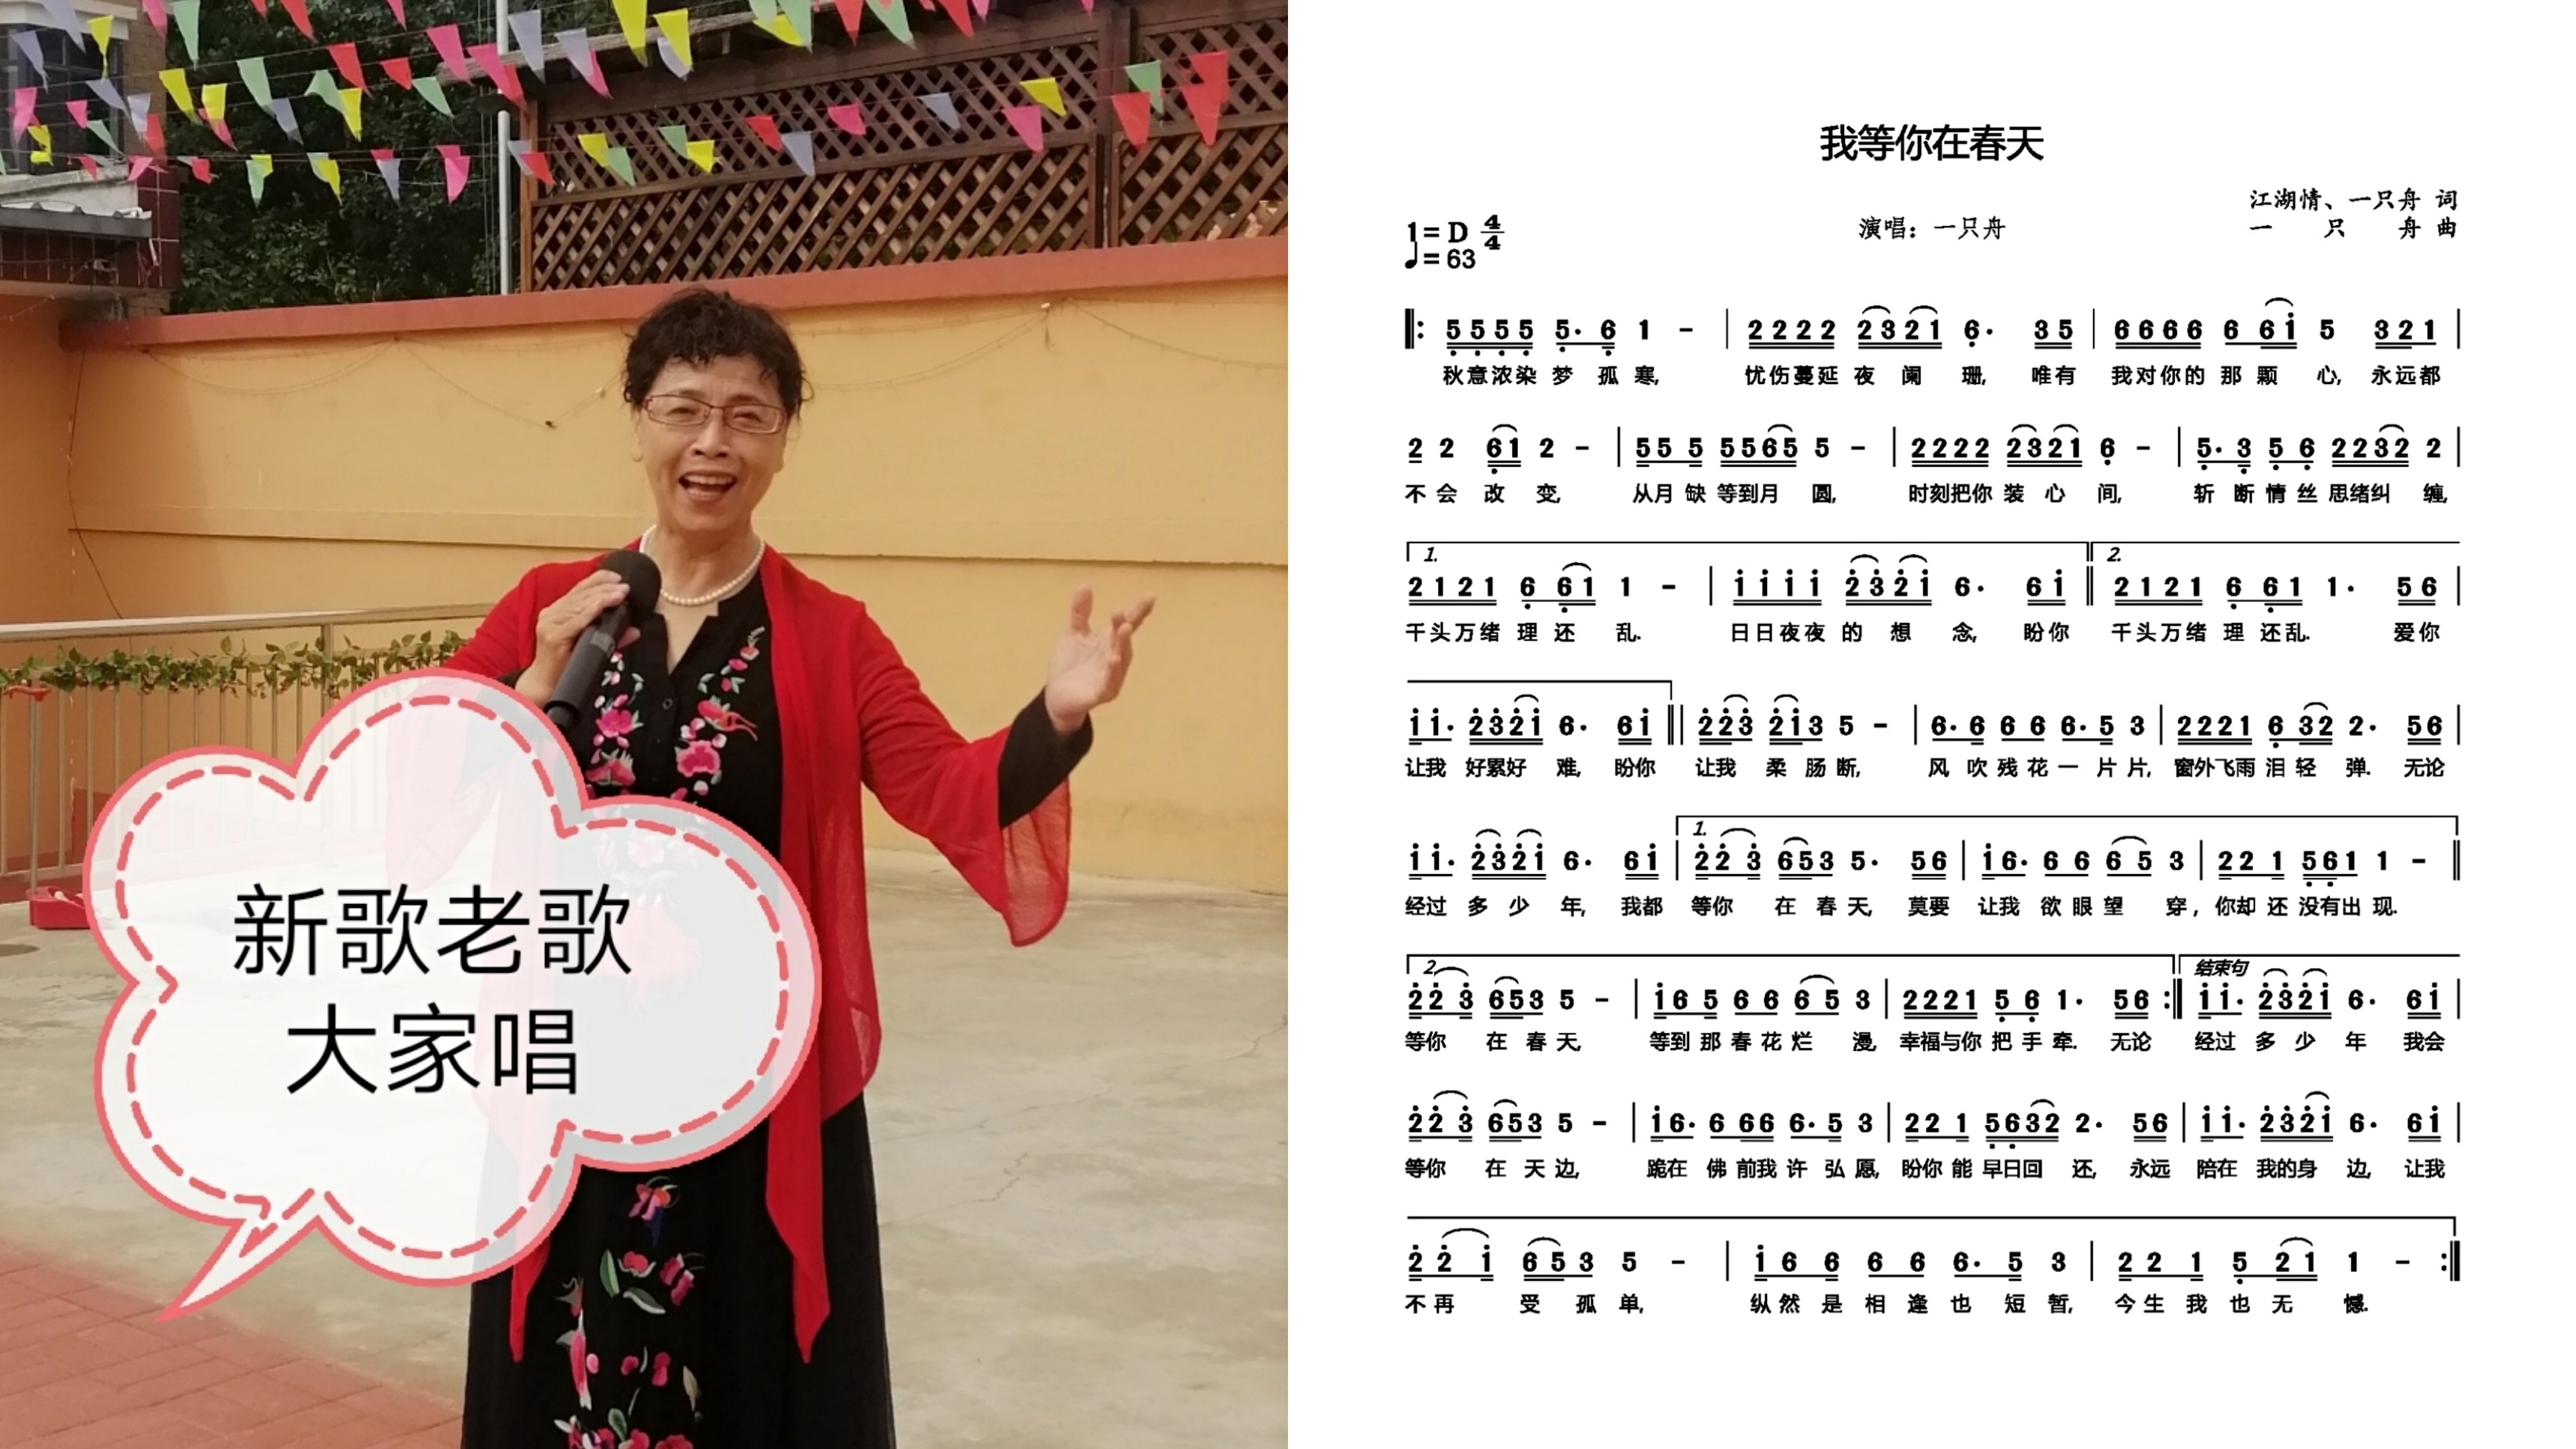 新歌老歌
大家唱
我等你在春天
江湖情、一只舟 词
1=D 4/4
演唱：一只舟
一 只 舟 曲
♩=63
5 5 5 5 5· 6 1 - | 2 2 2 2 2 3 2 1 6· 3 5 | 6 6 6 6 6 6 i 5 3 2 1 |
秋意浓染 梦 孤 寒, 忧伤蔓延 夜 阑 珊, 唯有 我对你的 那 颗 心, 永远都
2 2 6 1 2 - | 5 5 5 5 5 6 5 5 - | 2 2 2 2 2 3 2 1 6 - | 5· 3 5 6 2 2 3 2 2 |
不 会 改 变, 从月 缺 等到月 圆, 时刻把你 装 心 间, 斩 断 情 丝 思绪纠 缠,
1. 2.
2 1 2 1 6 6 1 1 - | i i i i 2 3 2 i 6· 6 i || 2 1 2 1 6 6 1 1· 5 6 |
千头万绪 理 还 乱. 日日夜夜 的 想 念, 盼你 千头万绪 理 还乱. 爱你
i i· 2 3 2 i 6· 6 i || 2 2 3 2 i 3 5 - | 6· 6 6 6 6· 5 3 | 2 2 2 1 6 3 2 2· 5 6 |
让我 好累好 难, 盼你 让我 柔 肠 断, 风 吹 残 花 一 片 片, 窗外飞雨 泪 轻 弹. 无论
1.
i i· 2 3 2 i 6· 6 i | 2 2 3 6 5 3 5· 5 6 | i 6· 6 6 6 5 3 | 2 2 1 5 6 1 1 - ||
经过 多 少 年, 我都 等你 在 春 天, 莫要 让我 欲 眼 望 穿, 你却 还 没有出 现.
2. 结束句
2 2 3 6 5 3 5 - | i 6 5 6 6 6 5 3 | 2 2 2 1 5 6 1· 5 6 :|| i i· 2 3 2 i 6· 6 i |
等你 在 春 天, 等到 那 春 花 烂 漫, 幸福与你 把 手 牵. 无论 经过 多 少 年 我会
2 2 3 6 5 3 5 - | i 6· 6 6 6 6· 5 3 | 2 2 1 5 6 3 2 2· 5 6 | i i· 2 3 2 i 6· 6 i |
等你 在 天 边, 跪在 佛 前我 许 弘 愿, 盼你 能 早日回 还, 永远 陪在 我的身 边, 让我
2 2 i 6 5 3 5 - | i 6 6 6 6 6· 5 3 | 2 2 1 5 2 1 1 - :||
不 再 受 孤 单, 纵 然 是 相 逢 也 短 暂, 今 生 我 也 无 憾.